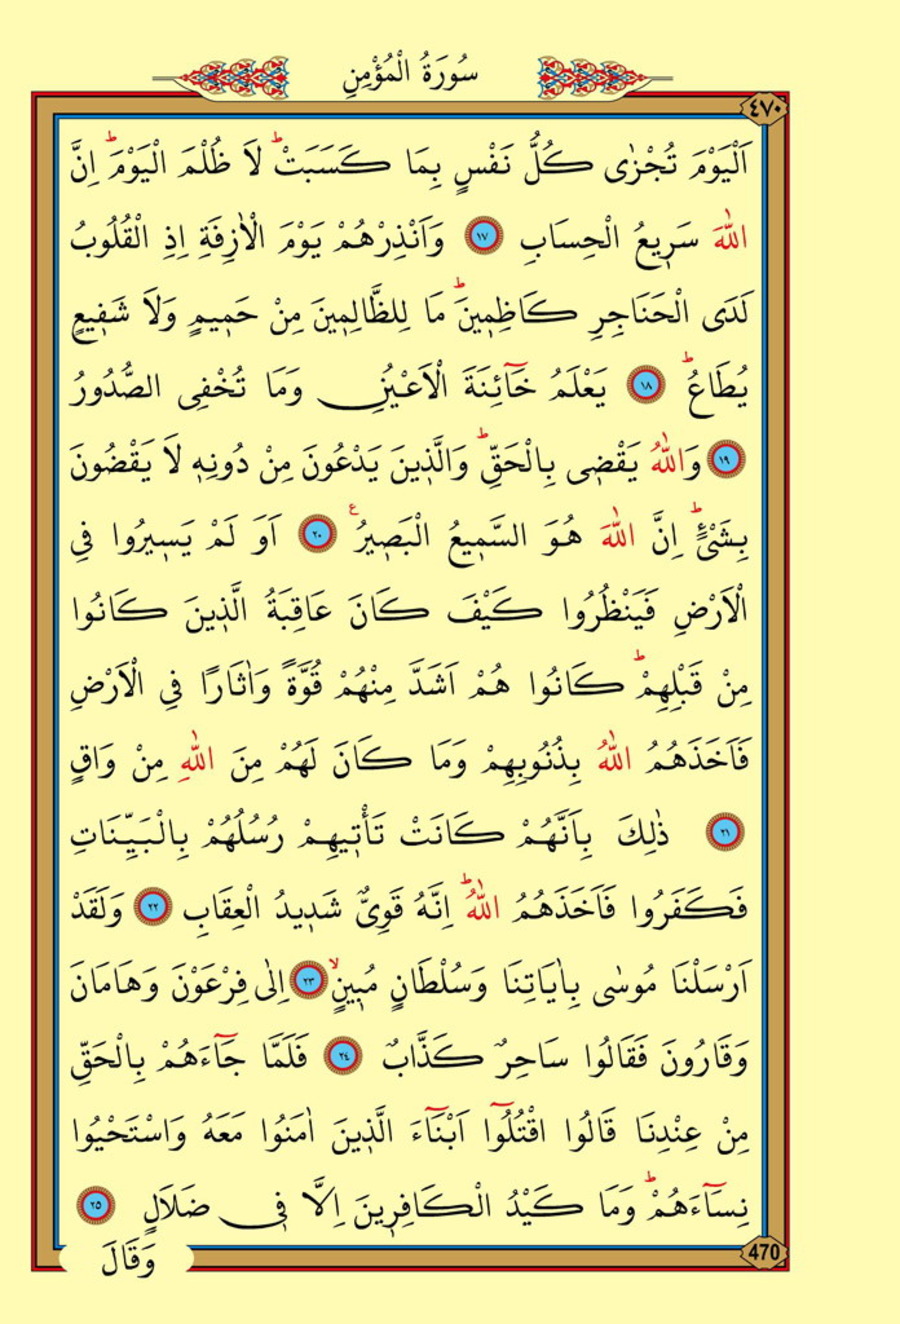 سُورَةُ الْمُؤْمِنِ
٤٧٠
اَلْيَوْمَ تُجْزٰى كُلُّ نَفْسٍ بِمَا كَسَبَتْۜ لَا ظُلْمَ الْيَوْمَۜ اِنَّ
اللّٰهَ سَرٖيعُ الْحِسَابِ ﴿١٧﴾ وَاَنْذِرْهُمْ يَوْمَ الْاٰزِفَةِ اِذِ الْقُلُوبُ
لَدَى الْحَنَاجِرِ كَاظِمٖينَۜ مَا لِلظَّالِمٖينَ مِنْ حَمٖيمٍ وَلَا شَفٖيعٍ
يُطَاعُۜ ﴿١٨﴾ يَعْلَمُ خَٓائِنَةَ الْاَعْيُنِ وَمَا تُخْفِى الصُّدُورُ
﴿١٩﴾ وَاللّٰهُ يَقْضٖى بِالْحَقِّۜ وَالَّذٖينَ يَدْعُونَ مِنْ دُونِهٖ لَا يَقْضُونَ
بِشَىْءٍۜ اِنَّ اللّٰهَ هُوَ السَّمٖيعُ الْبَصٖيرُ ع ﴿٢٠﴾ اَوَ لَمْ يَسٖيرُوا فِى
الْاَرْضِ فَيَنْظُرُوا كَيْفَ كَانَ عَاقِبَةُ الَّذٖينَ كَانُوا
مِنْ قَبْلِهِمْۜ كَانُوا هُمْ اَشَدَّ مِنْهُمْ قُوَّةً وَاٰثَارًا فِى الْاَرْضِ
فَاَخَذَهُمُ اللّٰهُ بِذُنُوبِهِمْ وَمَا كَانَ لَهُمْ مِنَ اللّٰهِ مِنْ وَاقٍ
﴿٢١﴾ ذٰلِكَ بِاَنَّهُمْ كَانَتْ تَأْتٖيهِمْ رُسُلُهُمْ بِالْبَيِّنَاتِ
فَكَفَرُوا فَاَخَذَهُمُ اللّٰهُۜ اِنَّهُ قَوِىٌّ شَدٖيدُ الْعِقَابِ ﴿٢٢﴾ وَلَقَدْ
اَرْسَلْنَا مُوسٰى بِاٰيَاتِنَا وَسُلْطَانٍ مُبٖينٍۙ ﴿٢٣﴾ اِلٰى فِرْعَوْنَ وَهَامَانَ
وَقَارُونَ فَقَالُوا سَاحِرٌ كَذَّابٌ ﴿٢٤﴾ فَلَمَّا جَٓاءَهُمْ بِالْحَقِّ
مِنْ عِنْدِنَا قَالُوا اقْتُلُٓوا اَبْنَٓاءَ الَّذٖينَ اٰمَنُوا مَعَهُ وَاسْتَحْيُوا
نِسَٓاءَهُمْۜ وَمَا كَيْدُ الْكَافِرٖينَ اِلَّا فٖى ضَلَالٍ ﴿٢٥﴾
470
وَقَالَ